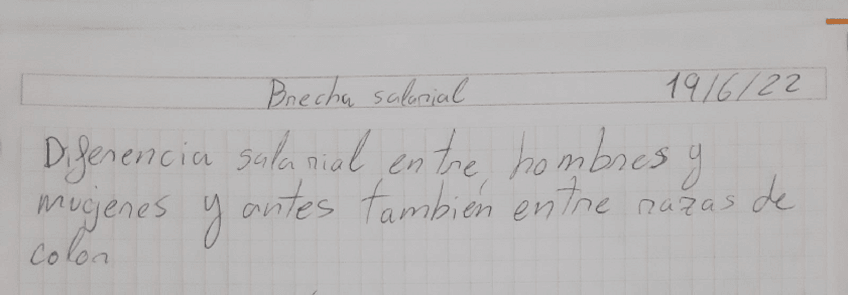 Brecha salarial 19/6/22
Diferencia salarial entre hombres y
mugeres y antes también entre razas de
color